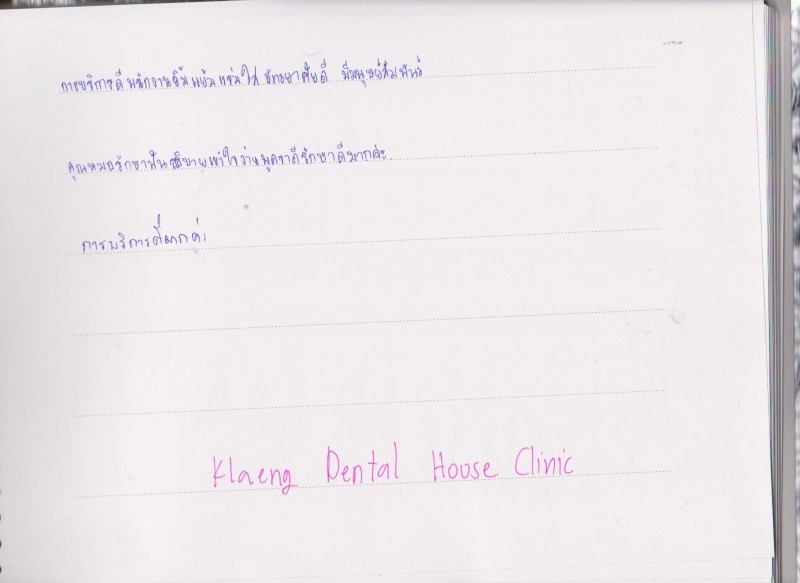 การบริการดีพนักงานยิ้มแย้มแจ่มใส อัทยาศัยดี มีมนุษย์สัมพันธ์
คุณหมอรักษาฟันอธิบายเข้าใจง่ายพูดจาดีรักษาดีมากค่ะ
การบริการดีมากค่ะ
Klaeng Dental House Clinic